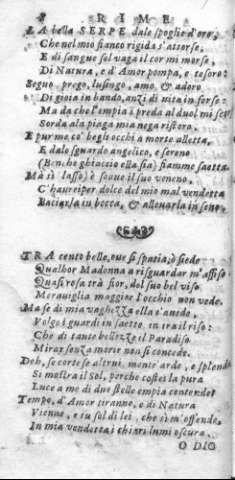 8 RIME
LA bella SERPE da le spoglie d'oro,
Che nel mio fianco rigida s'attorse,
E di sangue sol vaga il cor mi morse,
Di Natura, e d'Amor pompa, e tesoro:
Seguo prego, lusingo, amo, & adoro
Di gioia in bando, anzi di vita in forse:
Ma da che l'empia è preda al duol mi scorse
Sorda ala piaga mia nega ristoro.
E pur mo co' begli occhi a morte alletta,
E da lo sguardo angelico, e sereno
(Ben che ghiaccio ella sia) fiamme saetta.
Ma sì (lasso) è soave il suo veneno,
C'haurei per dolce del mio mal vendetta
Baciarla in bocca, & allevarla in seno.
TRA cento belle, ove si spatia, ò siede
Qualhor Madonna a risguardar m'affiso
Quasi rosa tra fior, dal suo bel viso
Meraviglia maggior l'occhio non vede.
Ma se di mia vaghezza ella s'avede,
Volge i guardi in saette, in ira il riso:
Che di tante bellezze il Paradiso
Mirar senza morir non si concede.
Deh, se cortese altrui, mente arde, e splende
Si mostra il Sol, perche costei la pura
Luce a me di due stelle empia contende?
Tempo, d'Amor tiranno, e di Natura
Vienne, e tu sol di lei, che sì m'offende,
In mia vendetta i chiari lumi oscura.
O DIO